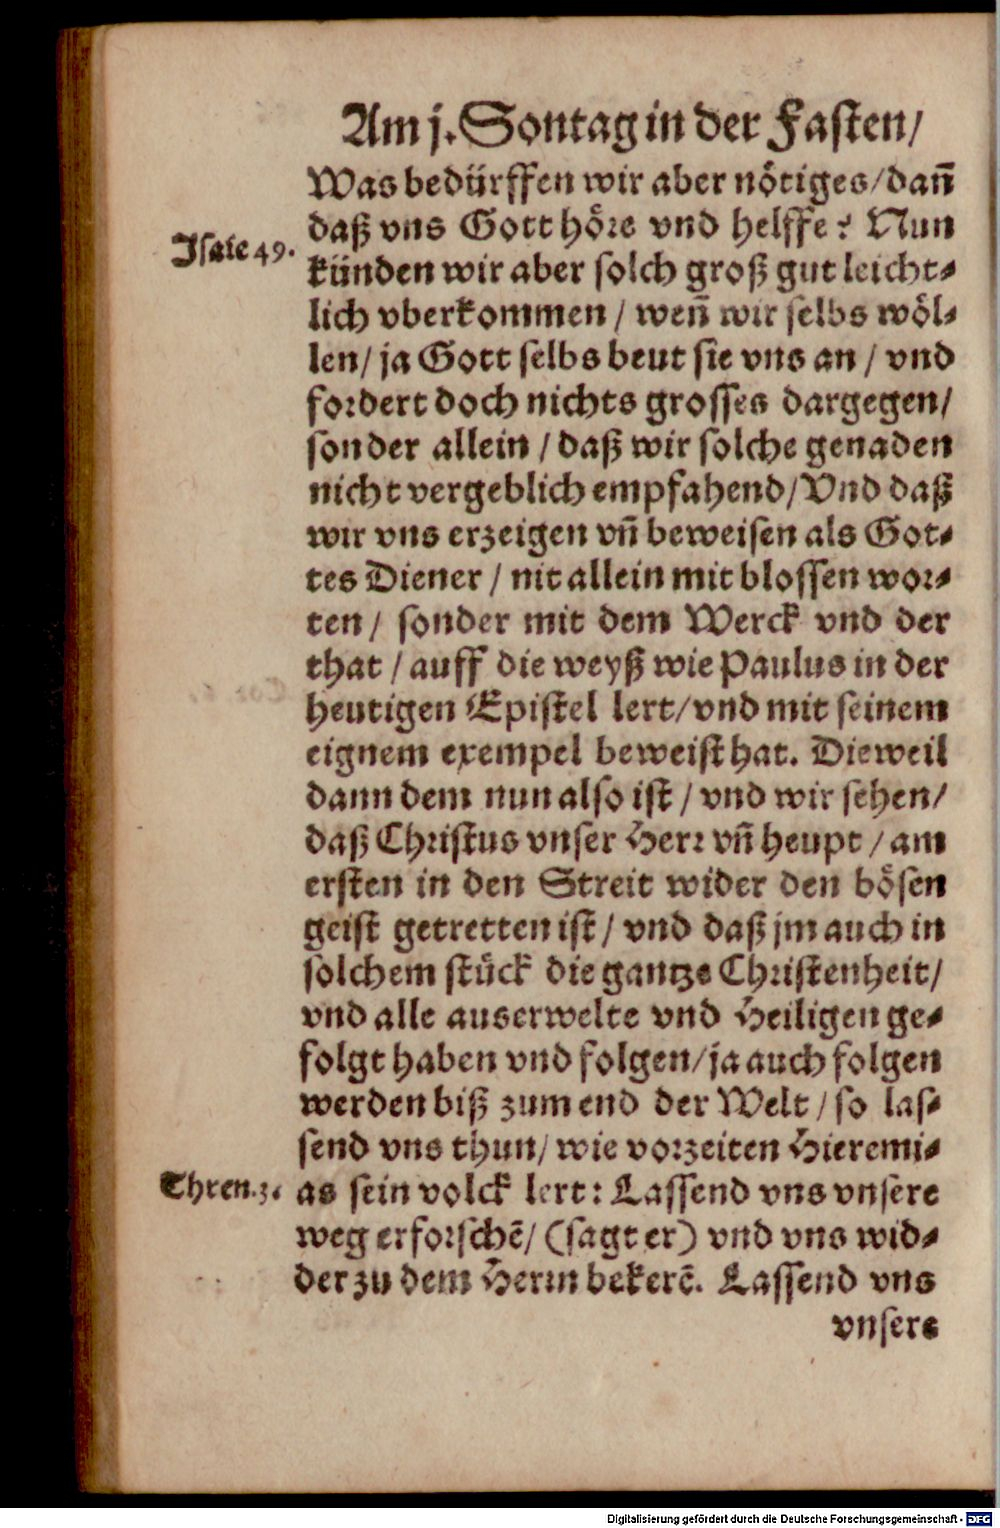 Am j. Sontag in der Fasten/
Was bedürffen wir aber nötiges/dañ
daß vns Gott höre vnd helffe? Nun
Isaie 49.
künden wir aber solch groß gut leicht-
lich vberkommen / weñ wir selbs wöl-
len/ ja Gott selbs beut sie vns an / vnd
fordert doch nichts grosses dargegen/
sonder allein / daß wir solche genaden
nicht vergeblich empfahend/Vnd daß
wir vns erzeigen vñ beweisen als Got-
tes Diener / nit allein mit blossen wor-
ten / sonder mit dem Werck vnd der
that / auff die weyß wie Paulus in der
heutigen Epistel lert/vnd mit seinem
eignem exempel beweist hat. Dieweil
dann dem nun also ist / vnd wir sehen/
daß Christus vnser Herr vñ heupt / am
ersten in den Streit wider den bösen
geist getretten ist / vnd daß jm auch in
solchem stück die gantze Christenheit/
vnd alle auserwelte vnd Heiligen ge-
folgt haben vnd folgen/ja auch folgen
werden biß zum end der Welt / so las-
send vns thun/ wie vorzeiten Hieremi-
Thren. 3.
as sein volck lert: Lassend vns vnsere
weg erforschē/ (sagt er) vnd vns wid-
der zu dem Herrn bekerē. Lassend vns
vnsere
Digitalisierung gefördert durch die Deutsche Forschungsgemeinschaft - DFG